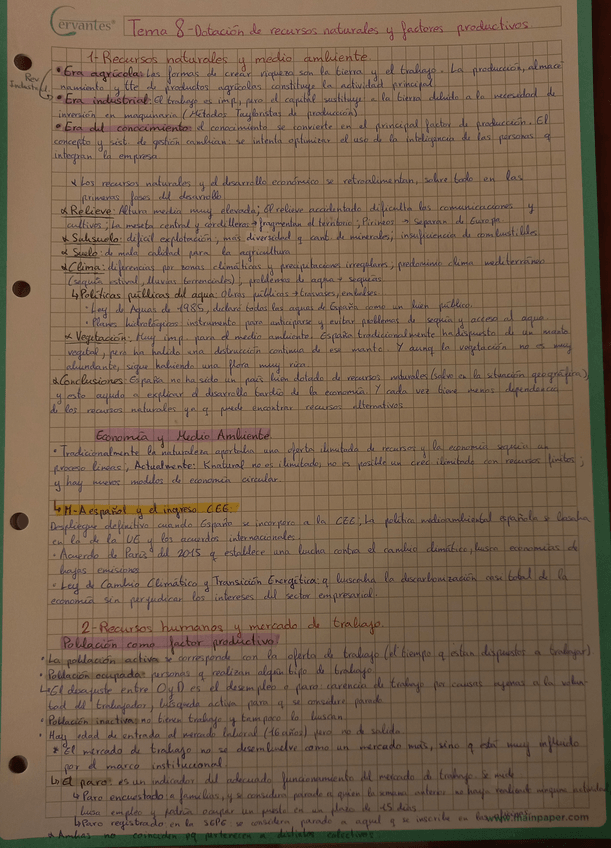 Cervantes®
Tema 8-Dotación de recursos naturales y factores productivos
1-Recursos naturales y medio ambiente.
Rev Industrial
• Era agrícola: Las formas de crear riqueza son la tierra y el trabajo. La producción, almace
namiento y tte de productos agrícolas constituye la actividad principal
• Era industrial: El trabajo es imp, pero el capital sustituye a la tierra debido a la necesidad de
inversión en maquinaria (Métodos Tayloristas de producción)
• Era del conocimiento: el conocimiento se convierte en el principal factor de producción. El
concepto y sist. de gestión cambian: se intenta optimizar el uso de la inteligencia de las personas q
integran la empresa
x Los recursos naturales y el desarrollo económico se retroalimentan, sobre todo en las
primeras fases del desarrollo
x Relieve: Altura media muy elevada; El relieve accidentado dificulta las comunicaciones y
cultivos; La meseta central y cordilleras → fragmentan el territorio; Pirineos → separan de Europa
x Subsuelo: difícil explotación, más diversidad q cant. de minerales, insuficiencia de combustibles
x Suelo: de mala calidad para la agricultura
x Clima: diferencias por zonas climáticas y precipitaciones irregulares, predominio clima mediterráneo
(sequía estival, lluvias torrenciales), problemas de agua → sequías
↳ Políticas públicas del agua: Obras públicas → travases, embalses
· Ley de Aguas de 1985, declaró todas las aguas de España como un bien público.
· Planes hidrológicos: instrumento para anticiparse y evitar problemas de sequía y acceso al agua
x Vegetación: Muy imp. para el medio ambiente. España tradicionalmente ha dispuesto de un manto
vegetal, pero ha habido una destrucción continua de ese manto. Y aunq la vegetación no es muy
abundante, sigue habiendo una flora muy rica
x Conclusiones: España no ha sido un país bien dotado de recursos naturales (salvo en la situación geográfica),
y esto ayuda a explicar el desarrollo tardío de la economía. Y cada vez tiene menos dependencia
de los recursos naturales ya q puede encontrar recursos alternativos
Economía y Medio Ambiente
· Tradicionalmente la naturaleza aportaba una oferta ilimitada de recursos y la economía seguía un
proceso lineas, Actualmente: K natural no es ilimitado, no es posible un crec. ilimitado con recursos finitos;
y hay nuevos modelos de economía circular.
↳ M-A español y el ingreso CEE:
Despliegue definitivo cuando España se incorpora a la CEE; La política medioambiental española se basaba
en la de la UE y los acuerdos internacionales.
· Acuerdo de París del 2015 q establece una lucha contra el cambio climático, busca economías de
bajas emisiones
· Ley de Cambio Climático y Transición Energética: q buscaba la descarbonización casi total de la
economía sin perjudicar los intereses del sector empresarial.
2-Recursos humanos y mercado de trabajo.
Población como factor productivo
· La población activa se corresponde con la oferta de trabajo (el tiempo q están dispuestos a trabajar)
· Población ocupada: personas q realizan algún tipo de trabajo
↳ El desajuste entre O y D es el desempleo o paro: carencia de trabajo por causas ajenas a la volun-
tad del trabajador, búsqueda activa para q se considere parado
· Población inactiva: no tienen trabajo y tampoco la buscan
· Hay edad de entrada al mercado laboral (16 años) pero no de salida
* El mercado de trabajo no se desenvuelve como un mercado más, sino q está muy influido
por el marco institucional.
↳ El paro: es un indicador del adecuado funcionamiento del mercado de trabajo. Se mide
↳ Paro encuestado: a familias, y se considera parado a quien la semana anterior no haya realizado ninguna actividad,
busca empleo y podría ocupar un puesto en un plazo de 15 días
↳ Paro registrado en la SEPE se considera parado a aquel q se inscribe en
* Ambos no coinciden pq pertenecen a distintos colectivos.
www.mainpaper.com